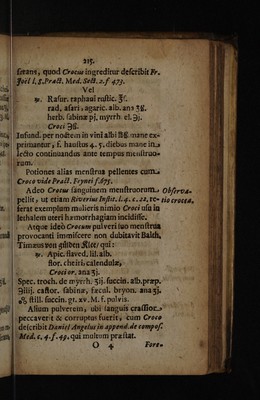 215.
ſerans, quod Crocus ingreditur deſcribit Fr.
Joël l. 8. Pract. Med. Sect. 2. f 473.
Vel
℞. Raſur. raphani ruſtic. ℥ſ.
rad. aſari, agaric. alb. ans ʒß.
herb. ſabinæ pj. myrrh. el. ℈j.
Croci ℈ß.
Infund. per noctem in vini albi ℔ß mane ex-
primantur, ſ. hauſtus 4. 5. diebus mane in
lecto continuandis ante tempus menſtruo-
rum.
Potiones alias menſtrua pellentes cum
Croco vide Pract. Frytei f. 675.
Adeò Crocus ſangvinem menſtruorum Obſerva-
pellit, ut etiam Riverius Inſtit. l. 4. c. 22. re- tio crocea.
ferat exemplum mulieris nimio Croci uſu in
lethalem uteri hæmorrhagiam incidiſſe.
Atque ideò Crocum pulveri ſuo menſtrua
provocanti immiſcere non dubitavit Balth.
Timæus von güldenKlee/ qui:
℞. Apic. flaved. lil. alb.
flor. cheiri, calendulæ,
Croci or. ana ʒj.
Spec. troch. de myrrh. ʒij. ſuccin. alb. præp.
ʒiiij. caſtor. ſabinæ, fæcul. bryon. ana ʒj.
ſtill. ſuccin. gt. xv. M. f. pulvis.
Alium pulverem, ubi ſangvis craſſior
peccaverit & corruptus fuerit, cum Croco
deſcribit Daniel Angelus in append. de compoſ.
Med. c. 4. f. 49. qui multùm præſtat.
O 4 Fore-